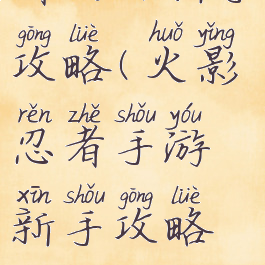 gōng lüè huǒ yǐng
攻略(火影
rěn zhě shǒu yóu
忍者手游
xīn shǒu gōng lüè
新手攻略